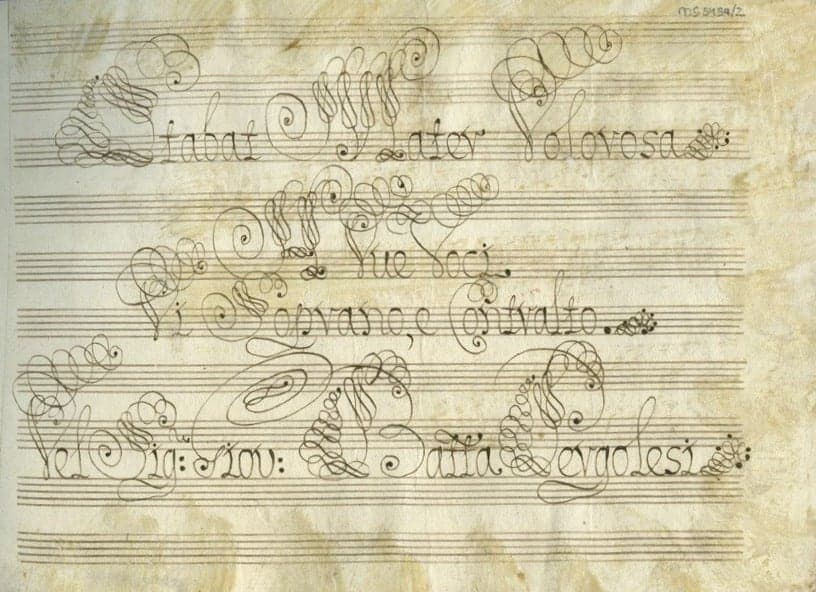 Stabat Mater Dolorosa
A Due Voci.
Di Soprano, e Contralto.
Del Sig: Giov: Batta Pergolesi